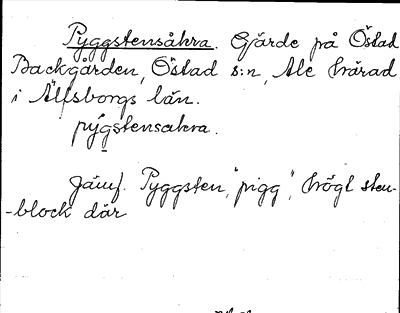 Pyggstensåkra. Gjärde på Östad
Backgården, Östad s:n, Ale härad
i Älfsborgs län.
pýgstensakra.
Jämf. Pyggsten, "pigg", högt sten-
-block där